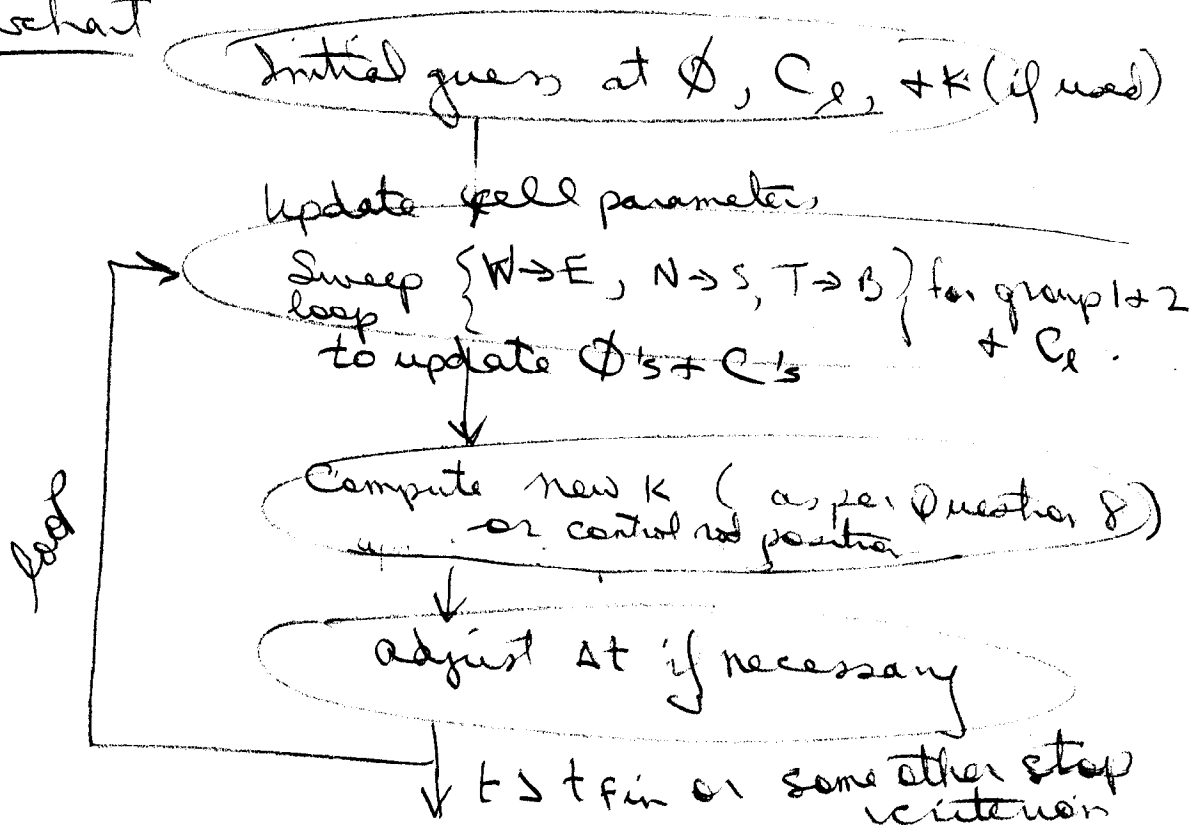 wchart
Initial guess at Ø, Cₗ, + K (if used)
Update cell parameters
Sweep {W→E, N→S, T→B} for group 1+2
loop + Cₗ.
to update Ø's + C's
loop
Compute new K (as per Question 8)
or control rod position
adjust Δt if necessary
t > t fin or some other stop
criterion